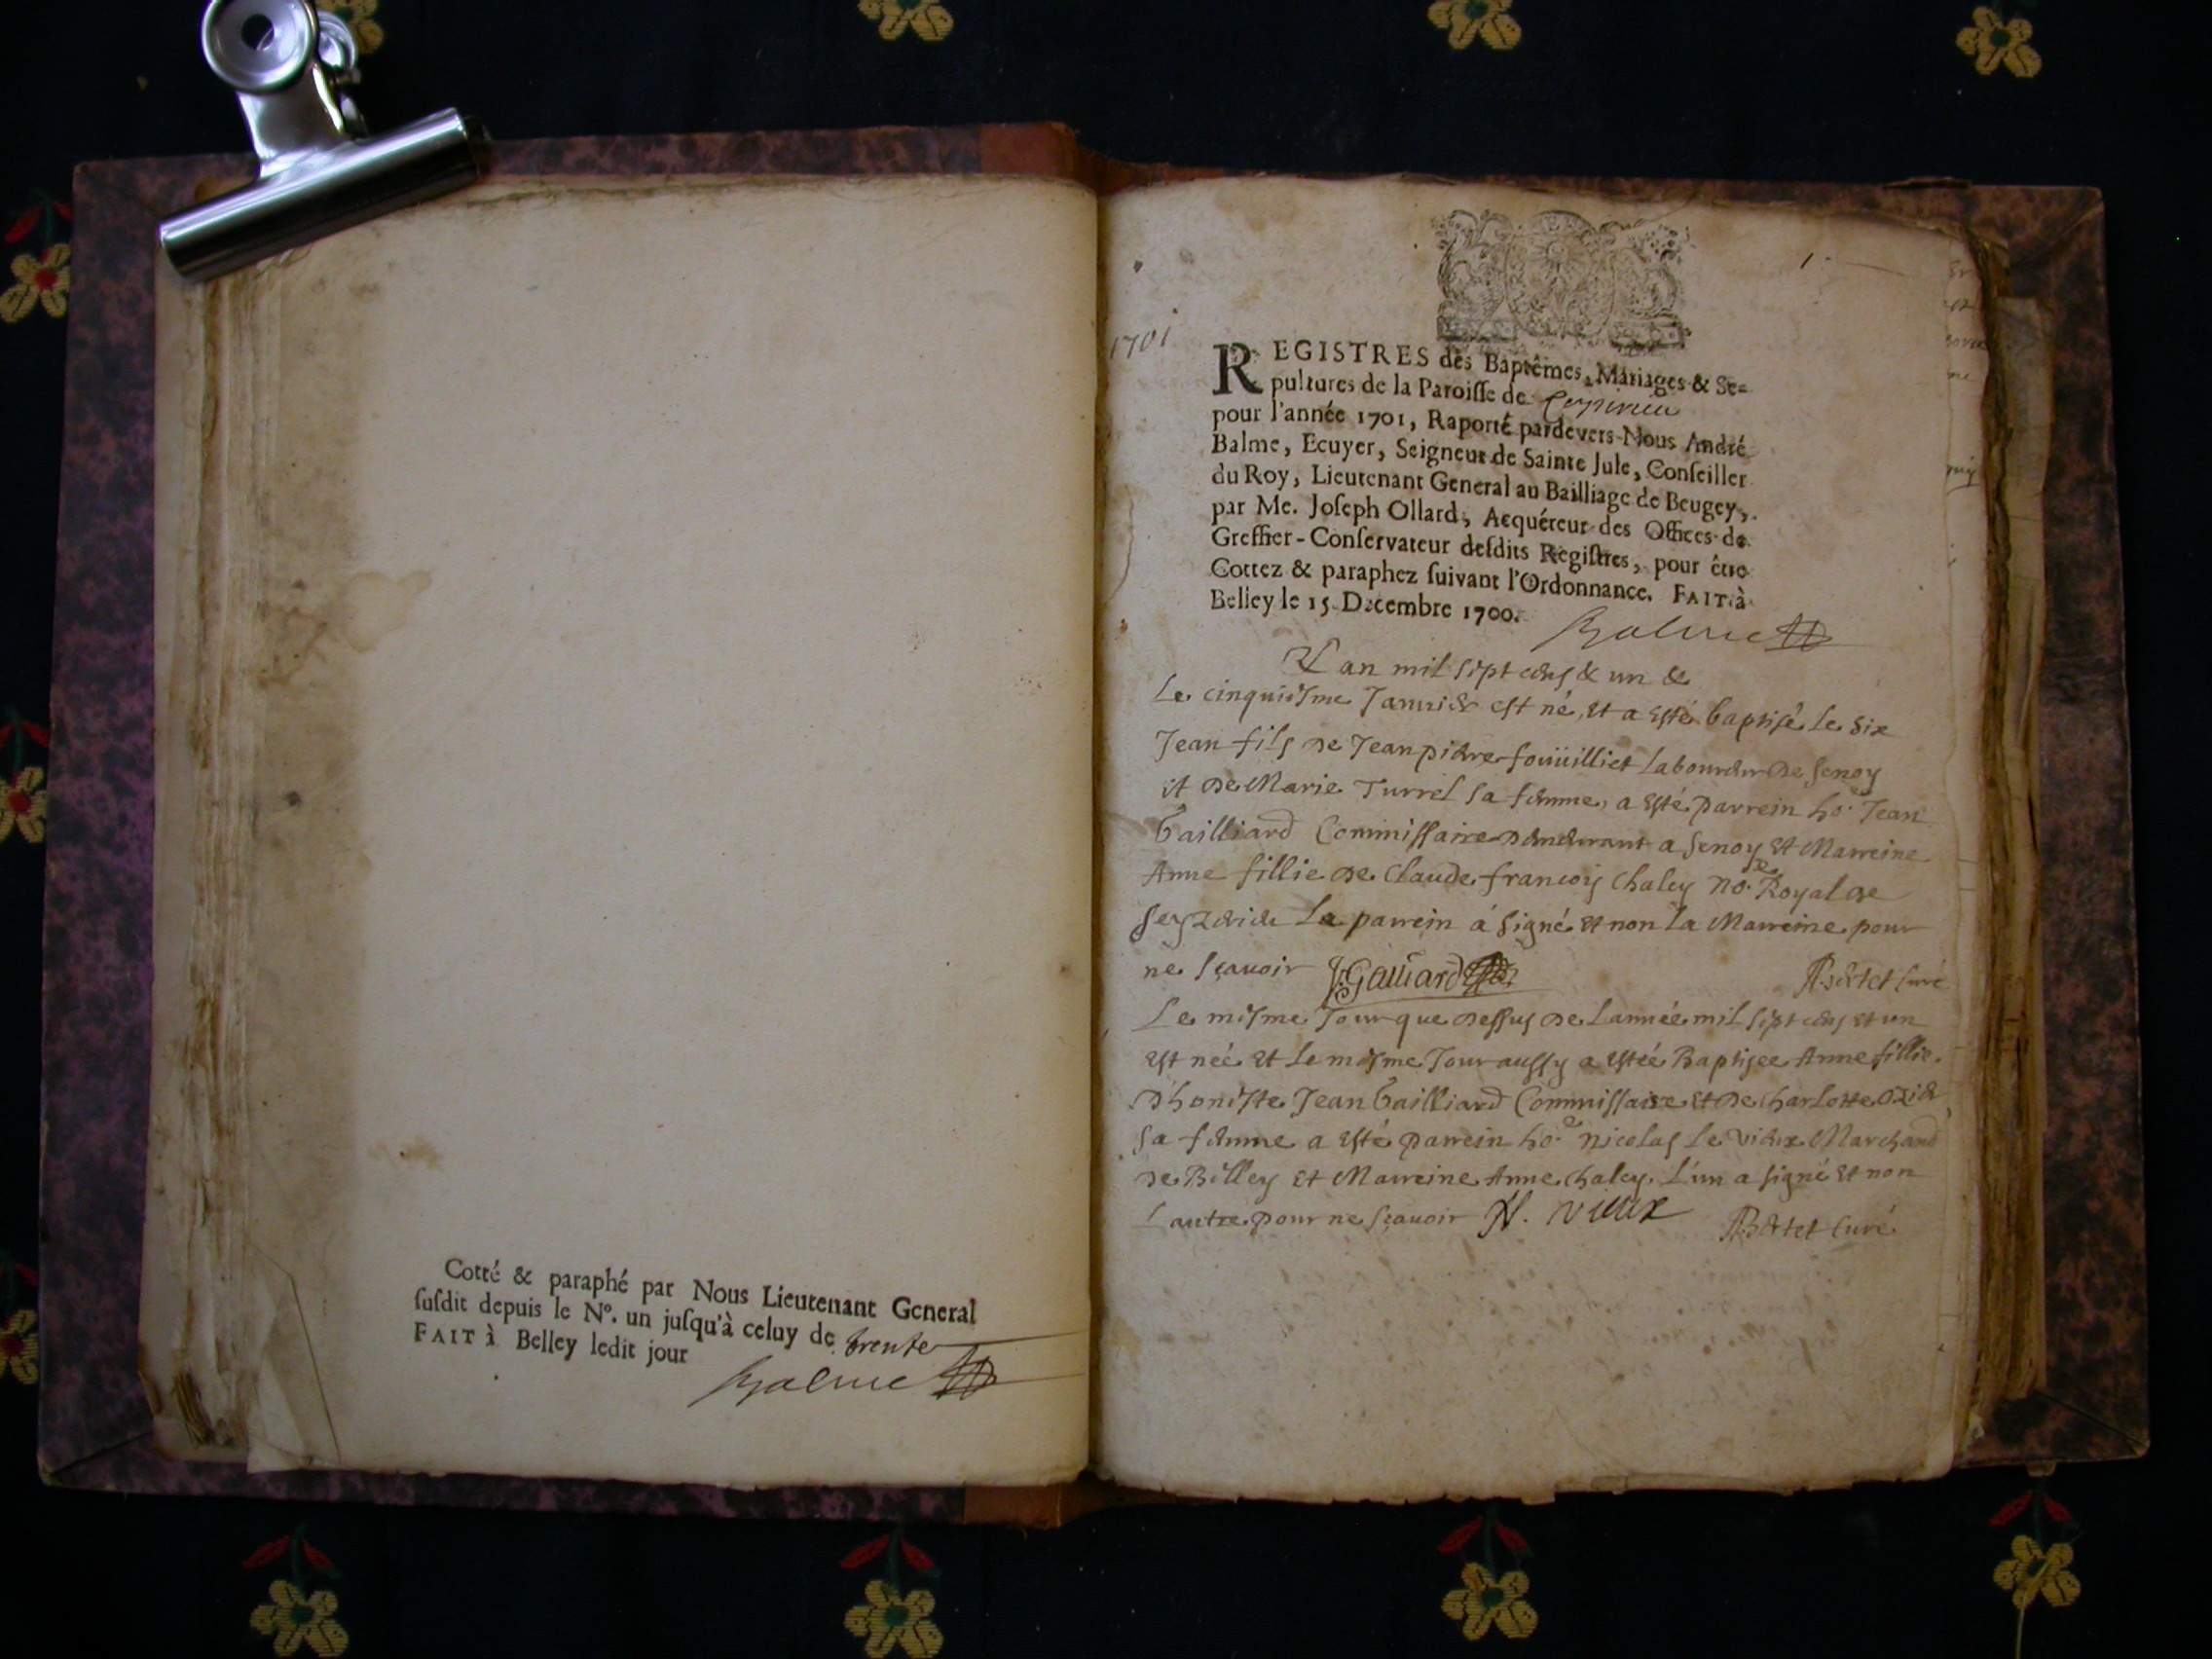 Cotté & paraphé par Nous Lieutenant General
susdit depuis le N°. un jusqu'à celuy de trente
FAIT à Belley ledit jour
Balme
1.
1701
REGISTRES des Baptêmes, Mariages & Se-
pultures de la Paroisse de
pour l'année 1701, Raporté pardevers Nous André
Balme, Ecuyer, Seigneur de Sainte Jule, Conseiller
du Roy, Lieutenant General au Bailliage de Beugey,
par Me. Joseph Ollard, Acquéreur des Offices de
Greffier-Conservateur desdits Registres, pour être
Cottez & paraphez suivant l'Ordonnance. FAIT à
Belley le 15. Decembre 1700.
Balme
L an mil sept cens & un &
Le cinquiesme Januier est né, et a esté baptisé le six
Jean fils de Jean pierre foüuilliet laboureur de Senoy
et de Marie Turrel sa femme, a esté parrein ho.e Jean
Gailliard Commissaire demeurant a Senoy et Marreine
Anne fillie de Claude françois Chaley no.re Royal de
Seyzerieu Le parrein a signé et non La Marreine pour
ne sçauoir J. Galliard Bertet Curé
Le mesme Jour que dessus de Lannée mil sept cens et un
est neé et Le mesme Jour aussy a estée Baptisee Anne fillie
d'honeste Jean Gailliard Commissaire et de Charlotte
sa femme a esté parrein ho.e Nicolas Le vieux Marchand
de Belley et Marreine Anne Chaley. L'un a signé et non
L autre pour ne sçauoir N. vieux Bertet Curé